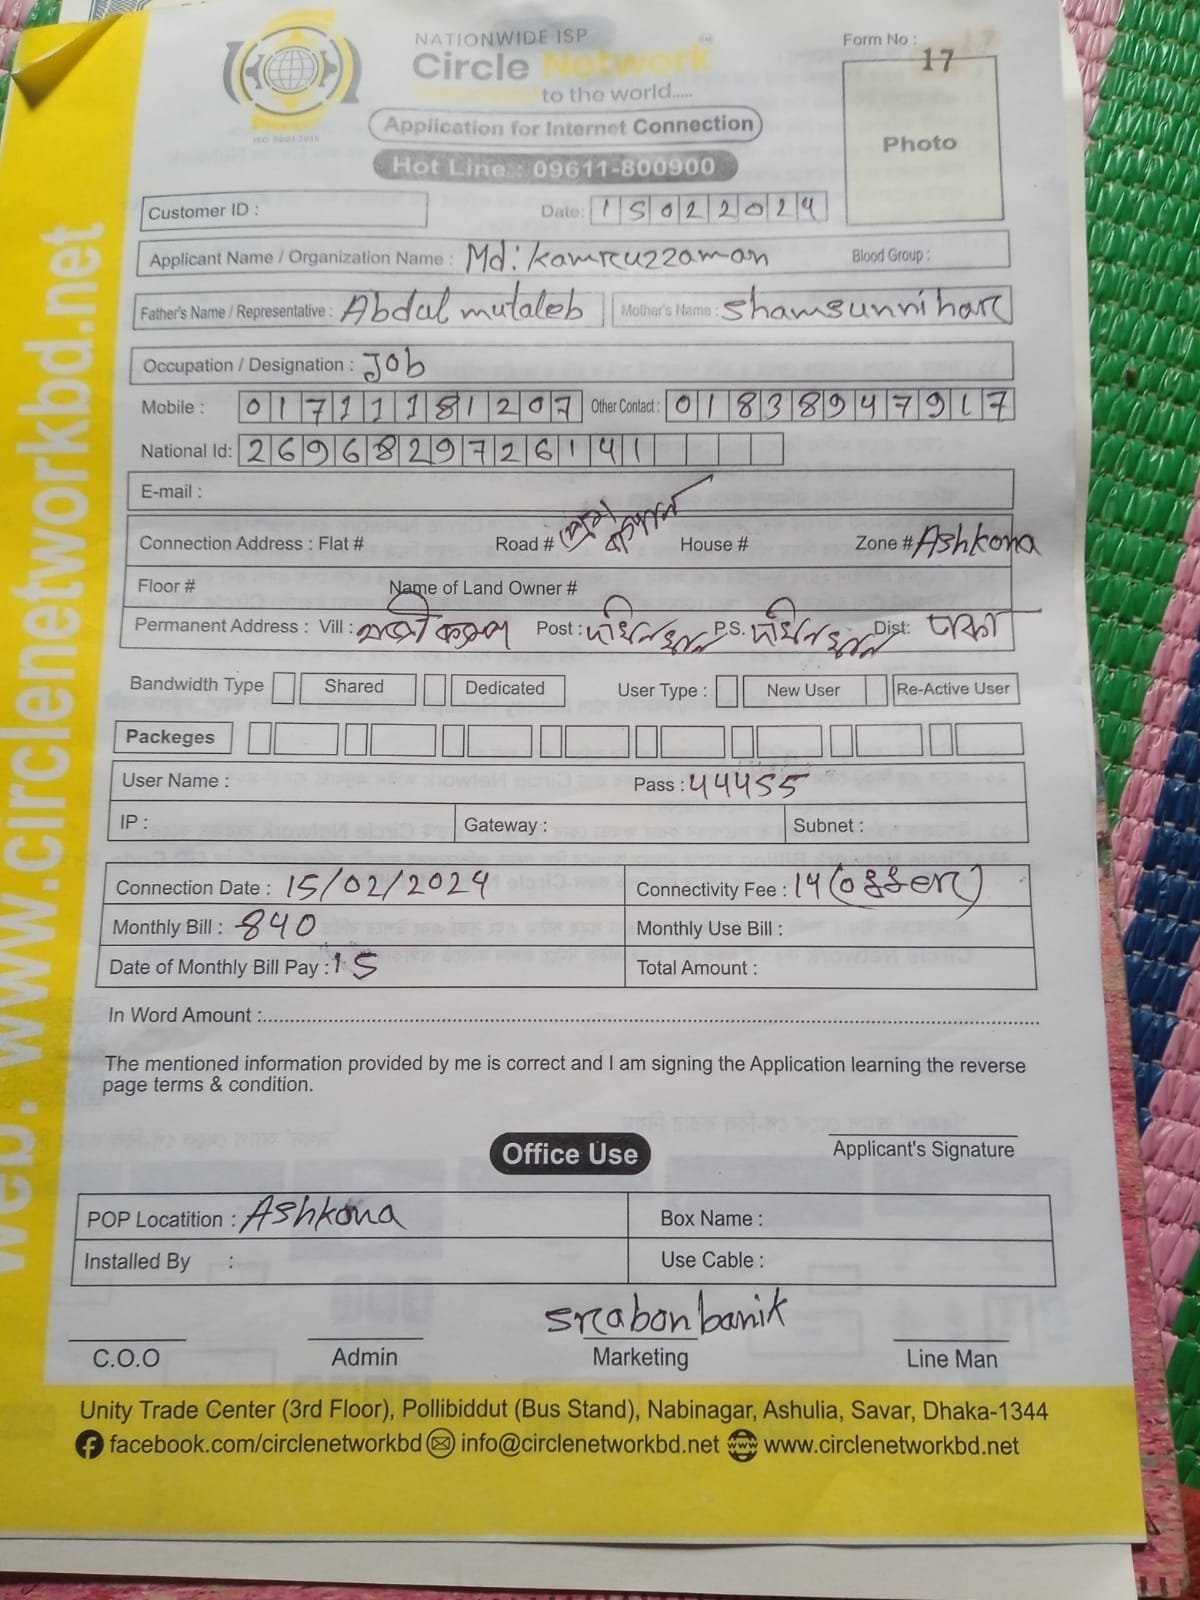 NATIONWIDE ISP
Circle Network
to the world.....
ISO 9001:2015
Form No : 17
Photo
Application for Internet Connection
Hot Line : 09611-800900
Customer ID :
Date: 15022024
Applicant Name / Organization Name : Md: kamruzzaman Blood Group :
Father's Name / Representative : Abdul mutaleb Mother's Name : Shamsunnihar
Occupation / Designation : Job
Mobile : 01711181207 Other Contact : 01838947917
National Id: 2696829726141
E-mail :
Connection Address : Flat # Road # House # Zone # Ashkona
Floor # Name of Land Owner #
Permanent Address : Vill : Post : দক্ষিনখান P.S. দক্ষিনখান Dist: ঢাকা
Bandwidth Type Shared Dedicated User Type : New User Re-Active User
Packeges
User Name : Pass : 44455
IP : Gateway : Subnet :
Connection Date : 15/02/2024 Connectivity Fee : 14 (offer)
Monthly Bill : 840 Monthly Use Bill :
Date of Monthly Bill Pay : 15 Total Amount :
In Word Amount :
The mentioned information provided by me is correct and I am signing the Application learning the reverse
page terms & condition.
Applicant's Signature
Office Use
POP Locatition : Ashkona Box Name :
Installed By : Use Cable :
srabon banik
C.O.O Admin Marketing Line Man
Unity Trade Center (3rd Floor), Pollibiddut (Bus Stand), Nabinagar, Ashulia, Savar, Dhaka-1344
facebook.com/circlenetworkbd info@circlenetworkbd.net www.circlenetworkbd.net
web: www.circlenetworkbd.net